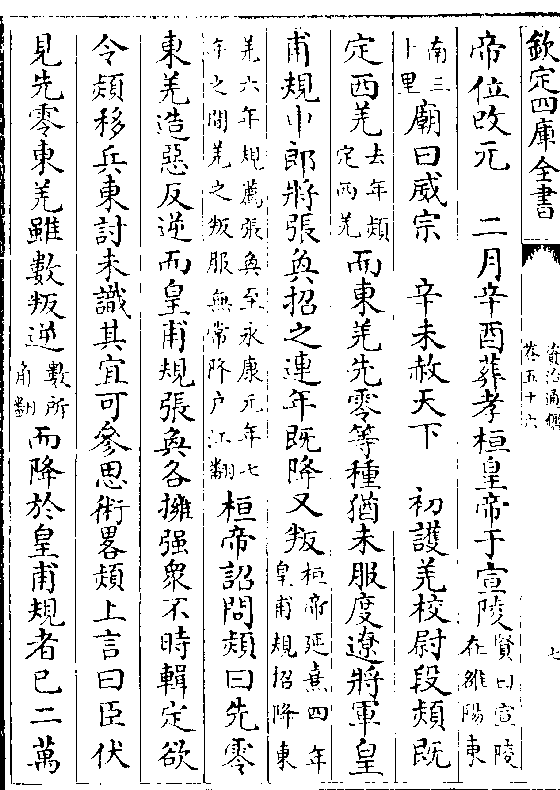 欽定四庫全書 資治通鑑 卷五十六 七
帝位改元 二月辛酉葬孝桓皇帝于宣陵賢曰宣陵在雒陽東
南三十里廟曰威宗 辛未赦天下 初護羌校尉段熲既
定西羌去年熲定西羌而東羌先零等種猶未服度遼將軍皇
甫規中郎將張奐招之連年既降又叛桓帝延熹四年皇甫規招降東
羌六年規薦張奐至永康元年七年之間羌之叛服無常降户江翻桓帝詔問熲曰先零
東羌造惡反逆而皇甫規張奐各擁强衆不時輯定欲
令熲移兵東討未識其宜可參思術畧熲上言曰臣伏
見先零東羌雖數叛逆數所角翻而降於皇甫規者已二萬